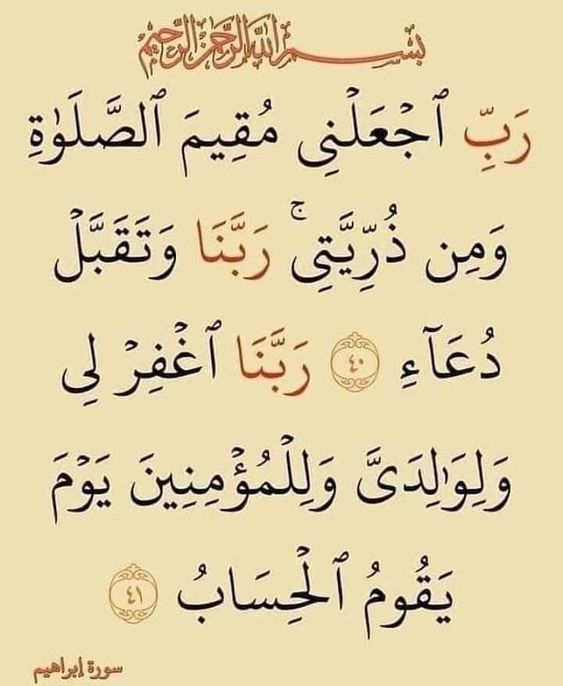 بِسْمِ اللَّهِ الرَّحْمَٰنِ الرَّحِيمِ
رَبِّ ٱجْعَلْنِى مُقِيمَ ٱلصَّلَوٰةِ
وَمِن ذُرِّيَّتِى ۚ رَبَّنَا وَتَقَبَّلْ
دُعَآءِ ٤٠ رَبَّنَا ٱغْفِرْ لِى
وَلِوَٰلِدَىَّ وَلِلْمُؤْمِنِينَ يَوْمَ
يَقُومُ ٱلْحِسَابُ ٤١
سورة إبراهيم